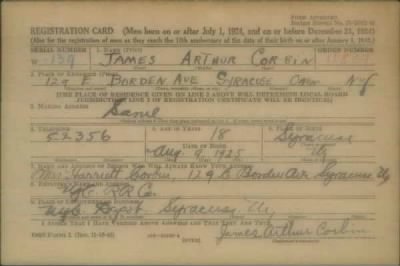 REGISTRATION CARD (Men born on or after July 1, 1924, and on or before December 31, 1924)
(Also for the registration of men as they reach the 18th anniversary of the date of their birth on or after January 1, 1925.)
SERIAL NUMBER 1. NAME (Print) ORDER NUMBER
W-139 JAMES ARTHUR CORBIN
2. PLACE OF RESIDENCE (Print)
129 E BORDEN AVE SYRACUSE ONON NY
(THE PLACE OF RESIDENCE GIVEN ON LINE 2 ABOVE WILL DETERMINE LOCAL BOARD
JURISDICTION; LINE 2 OF REGISTRATION CERTIFICATE WILL BE IDENTICAL)
3. MAILING ADDRESS
Same
4. TELEPHONE 5. AGE IN YEARS 6. PLACE OF BIRTH
52356 18 Syracuse
DATE OF BIRTH
Aug. 9, 1925 NY
7. NAME AND ADDRESS OF PERSON WHO WILL ALWAYS KNOW YOUR ADDRESS
Mrs Harriett Corbin, 129 E Borden Ave Syracuse NY
8. EMPLOYER'S NAME AND ADDRESS
NYC RR Co.
9. PLACE OF EMPLOYMENT OR BUSINESS
NYC Depot Syracuse, NY
I AFFIRM THAT I HAVE VERIFIED ABOVE ANSWERS AND THAT THEY ARE TRUE.
James Arthur Corbin